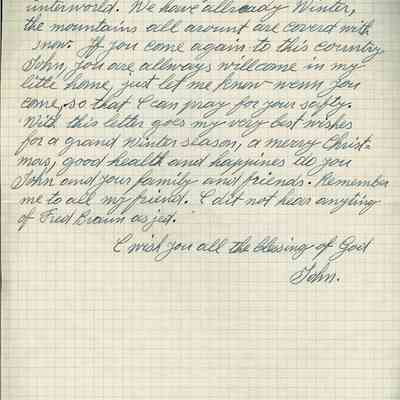 unterworld. We have allready Winter,
the mountains all arount are coverd with
snow. If you come again to this country
John, you are allways willcome in my
little home, just let me know wenn you
come, so that I can pray for your safty.
With this letter goes my very best wishes
for a grand Winter season, a merry Christ=
mas, good health and happines to you
John and your family and friends. Remember
me to all my friend. I dit not hear anyting
of Fred Braun as jet.
I wish you all the blessing of God
John.